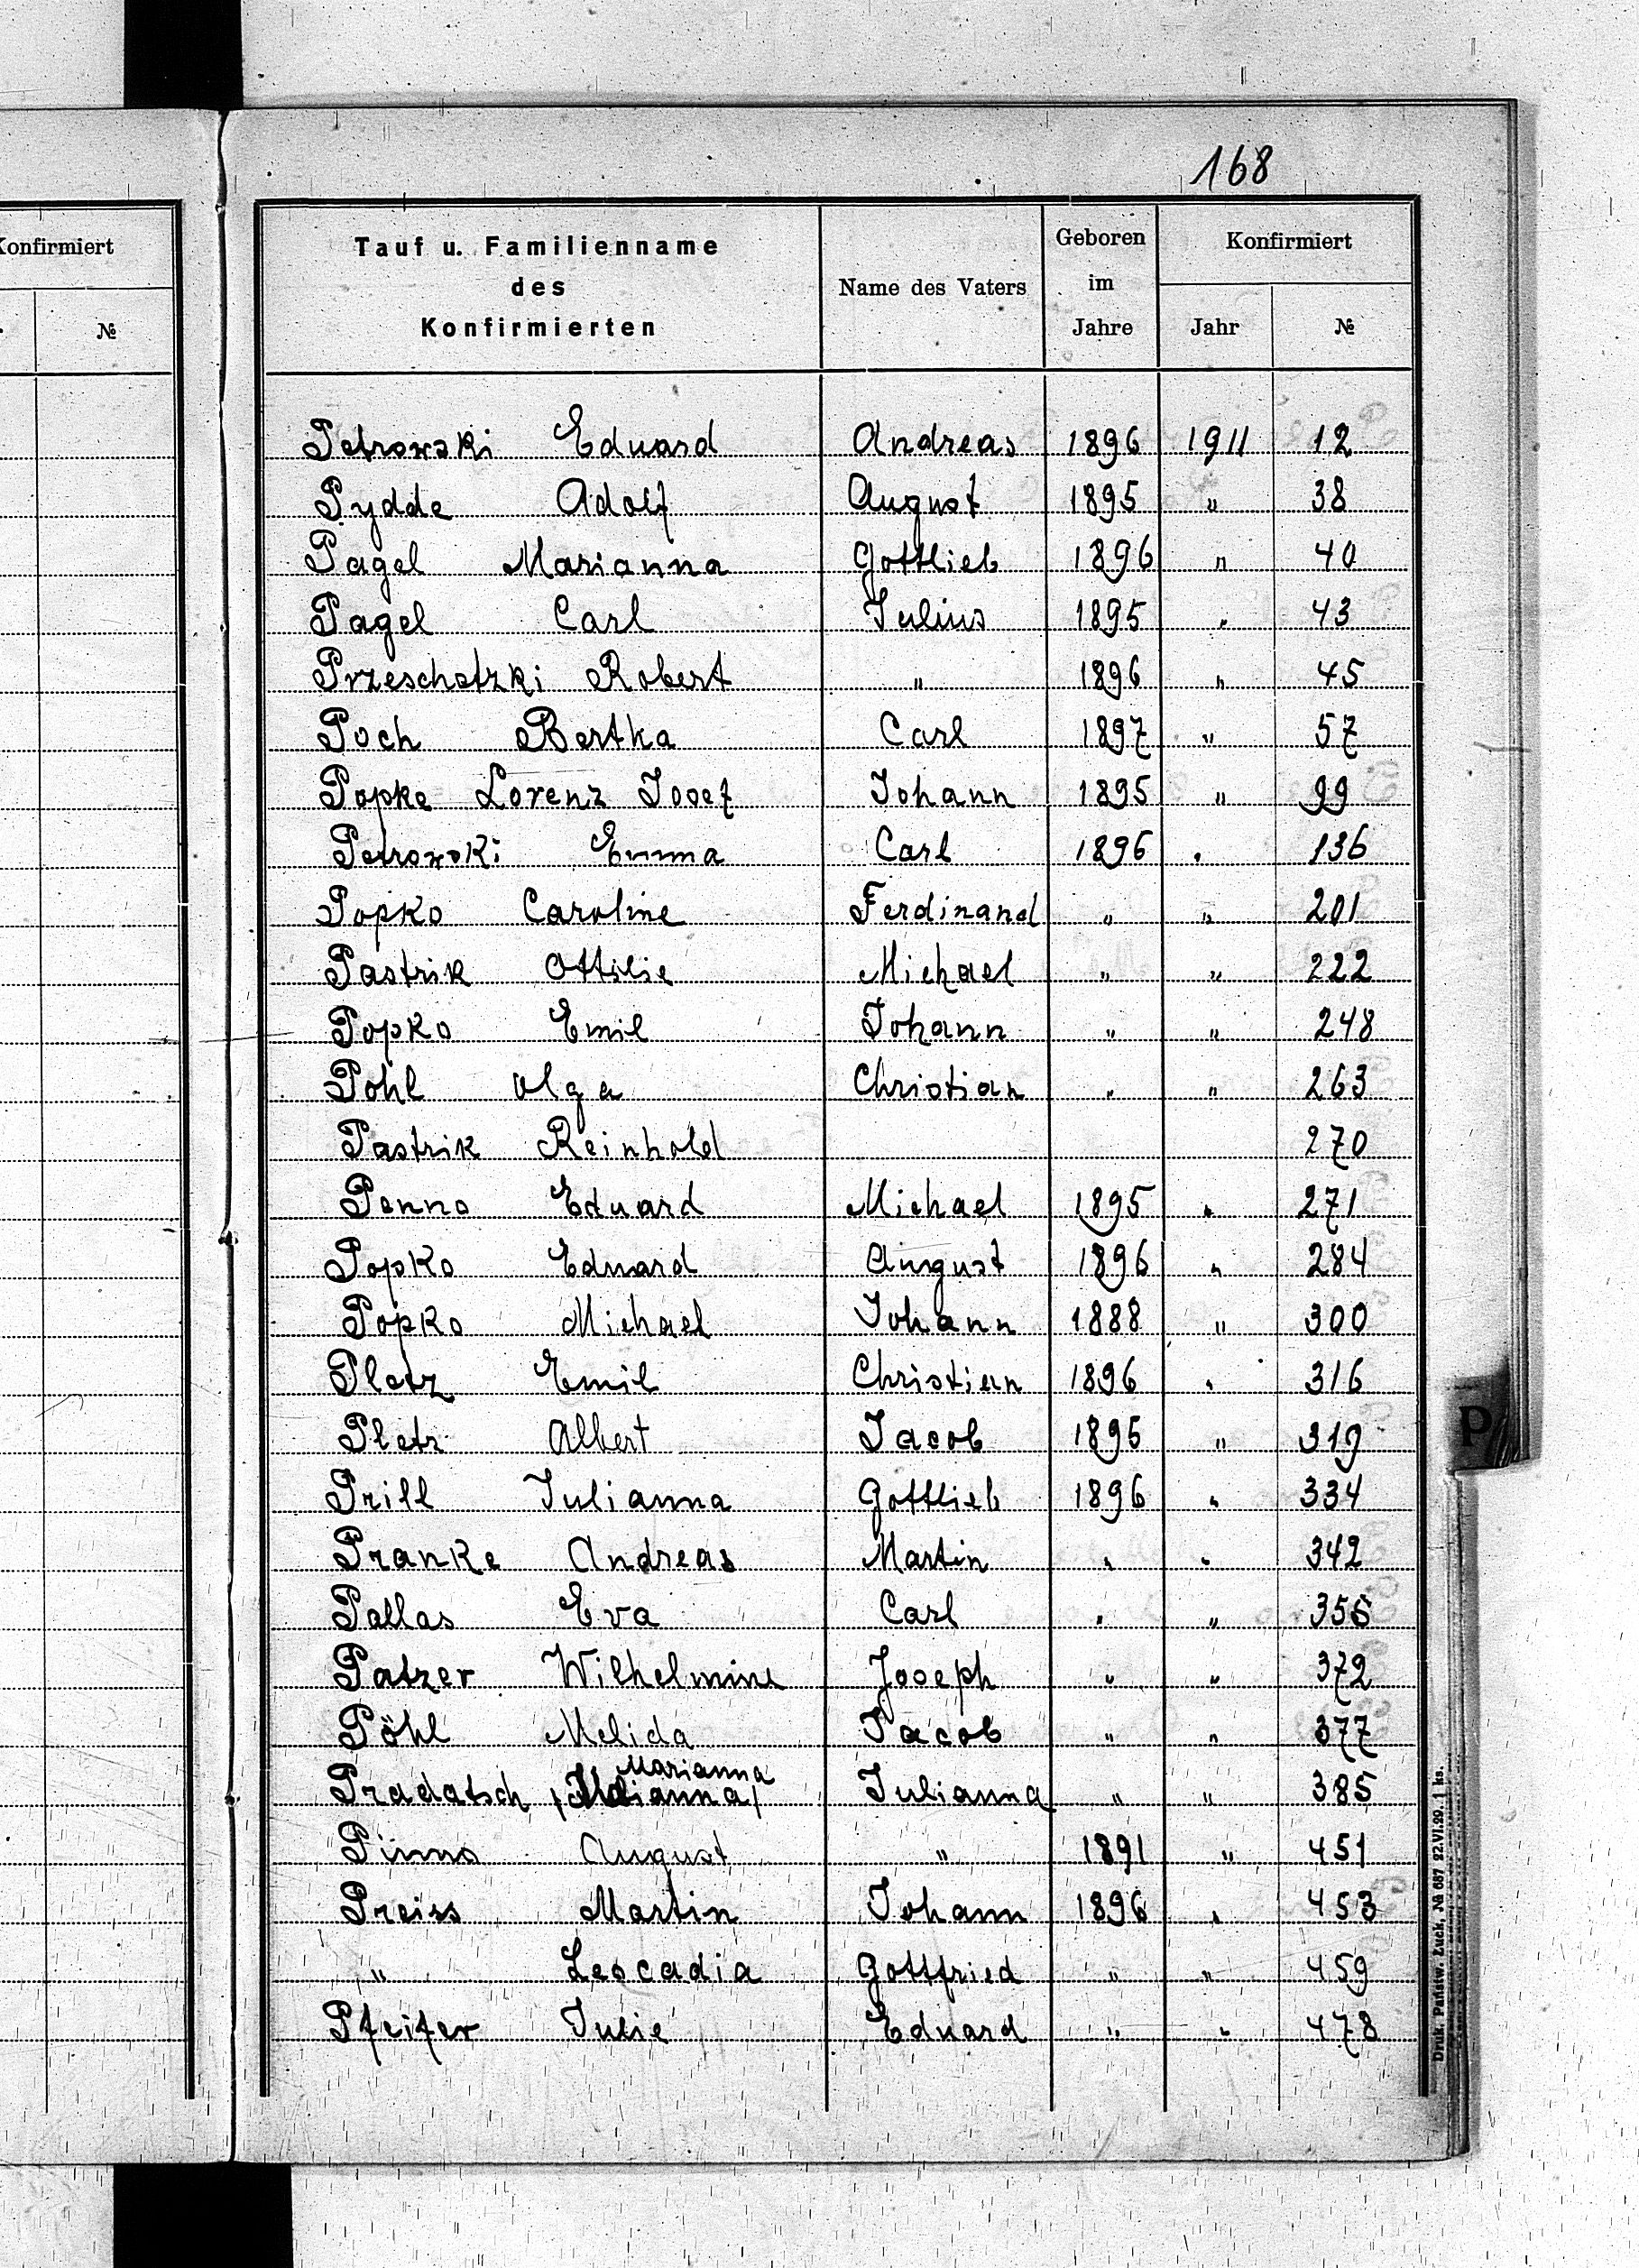 168
Konfirmiert
№
Tauf u. Familienname des Konfirmierten | Name des Vaters | Geboren im Jahre | Konfirmiert
Jahr | №
Petrowski Eduard Andreas 1896 1911 12
Pydde Adolf August 1895 " 38
Pagel Marianna Gottlieb 1896 " 40
Pagel Carl Julius 1895 " 43
Przeschatzki Robert " 1896 " 45
Poch Bertha Carl 1897 " 57
Popke Lorenz Josef Johann 1895 " 99
Petrowski Emma Carl 1896 " 136
Popko Caroline Ferdinand " " 201
Pastrik Ottilie Michael " " 222
Popko Emil Johann " " 248
Pohl Olga Christian " " 263
Pastrik Reinhold 270
Penno Eduard Michael 1895 " 271
Popko Eduard August 1896 " 284
Popko Michael Johann 1888 " 300
Pletz Emil Christian 1896 " 316
Pletz Albert Jacob 1895 " 319
Prill Julianna Gottlieb 1896 " 334
Pranke Andreas Martin " " 342
Pallas Eva Carl " " 355
Patzer Wilhelmine Joseph " " 372
Pöhl Melida Jacob " " 377
Marianna
Pradatsch Julianna " " 385
Pinno August " 1891 " 451
Preiss Martin Johann 1896 " 453
" Leocadia Gottfried " " 459
Pfeifer Julie Eduard " " 478
P
Druk. Państw. Łuck, № 687 22.VI.29. 1 ks.